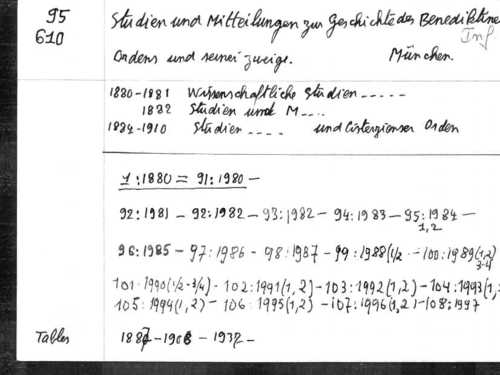 95
610
Studien und Mitteilungen zur Geschichte des Benediktine
Inf
Ordens und seiner zweige. München.
1880-1881 Wissenschaftliche Studien -----
1882 Studien und M....
1884-1910 Studien .... und Cistergienser Orden
1:1880 = 91:1980 -
92:1981 - 92:1982 - 93:1982 - 94:1983 - 95:1984 -
1,2
96:1985 - 97:1986 - 98:1987 - 99:1988(1/2 - 100:1989(1,2)
3-4
101:1990(1/2-3/4) - 102:1991(1,2) - 103:1992(1,2) - 104:1993(1,
105:1994(1,2) - 106:1995(1,2) - 107:1996(1,2) - 108:1997
Tables 1887 - 1908 - 1932 -